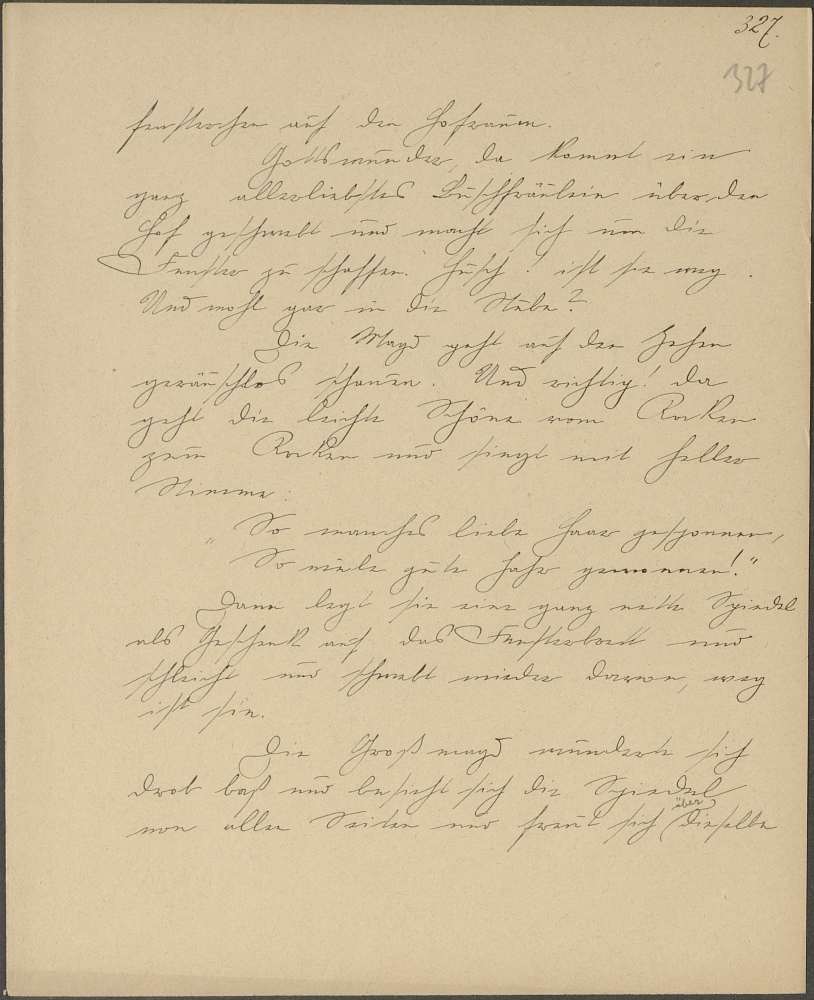 327.
327
fensterchen auf den Hofraum.
Gottswunder, da kommt ein
ganz allerliebstes Buschfräulein über den
Hof geschwebt und macht sich um die
Fenster zu schaffen. Husch! ist sie weg.
Und wohl gar in die Stube?
Die Magd geht auf den Zehen
geräuschlos schauen. Und richtig! da
geht die leichte Schöne vom Rocken
zum Rocken und singt mit heller
Stimme:
"So manches liebe Haar gesponnen,
So viele gute Jahr gewonnen!"
Dann legt sie eine ganz nette Spindel
als Geschenk auf das Fensterbrett und
schleicht und schwebt wieder davon, weg
ist sie.
Die Großmagd wundert sich
drob baß und besieht sich die Spindel
von allen Seiten und freut sich über dieselbe